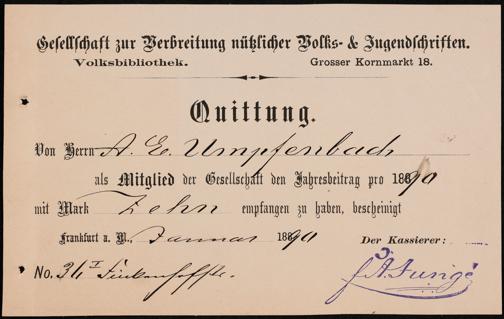 Gesellschaft zur Verbreitung nützlicher Volks- & Jugendschriften.
Volksbibliothek. Grosser Kornmarkt 18.
Quittung.
Von Herrn A. E. Umpfenbach
als Mitglied der Gesellschaft den Jahresbeitrag pro 1890
mit Mark Zehn empfangen zu haben, bescheinigt
Frankfurt a. M., Januar 1890 Der Kassierer:
No. 36